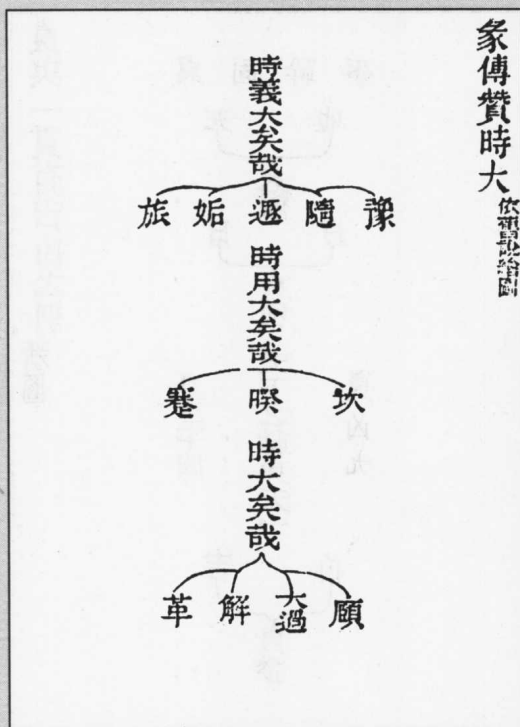 彖傳贊時大
時義大矣哉
豫 隨 遯 姤 旅
時用大矣哉
坎 睽 蹇
時大矣哉
頤 大過 解 革